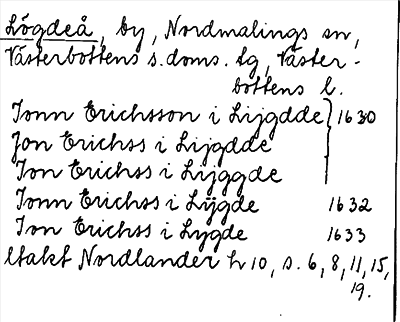 Lögdeå, by, Nordmalings sn,
Västerbottens s. doms. tg, Väster-
bottens l.
Jonn Erichsson i Lijgdde } 1630
Jon Erichss i Lijgdde
Jon Erichss i Lijggde
Jonn Erichss i Lÿgde 1632
Jon Erichss i Lygde 1633
ltakt Nordlander h 10, s. 6, 8, 11, 15,
19.